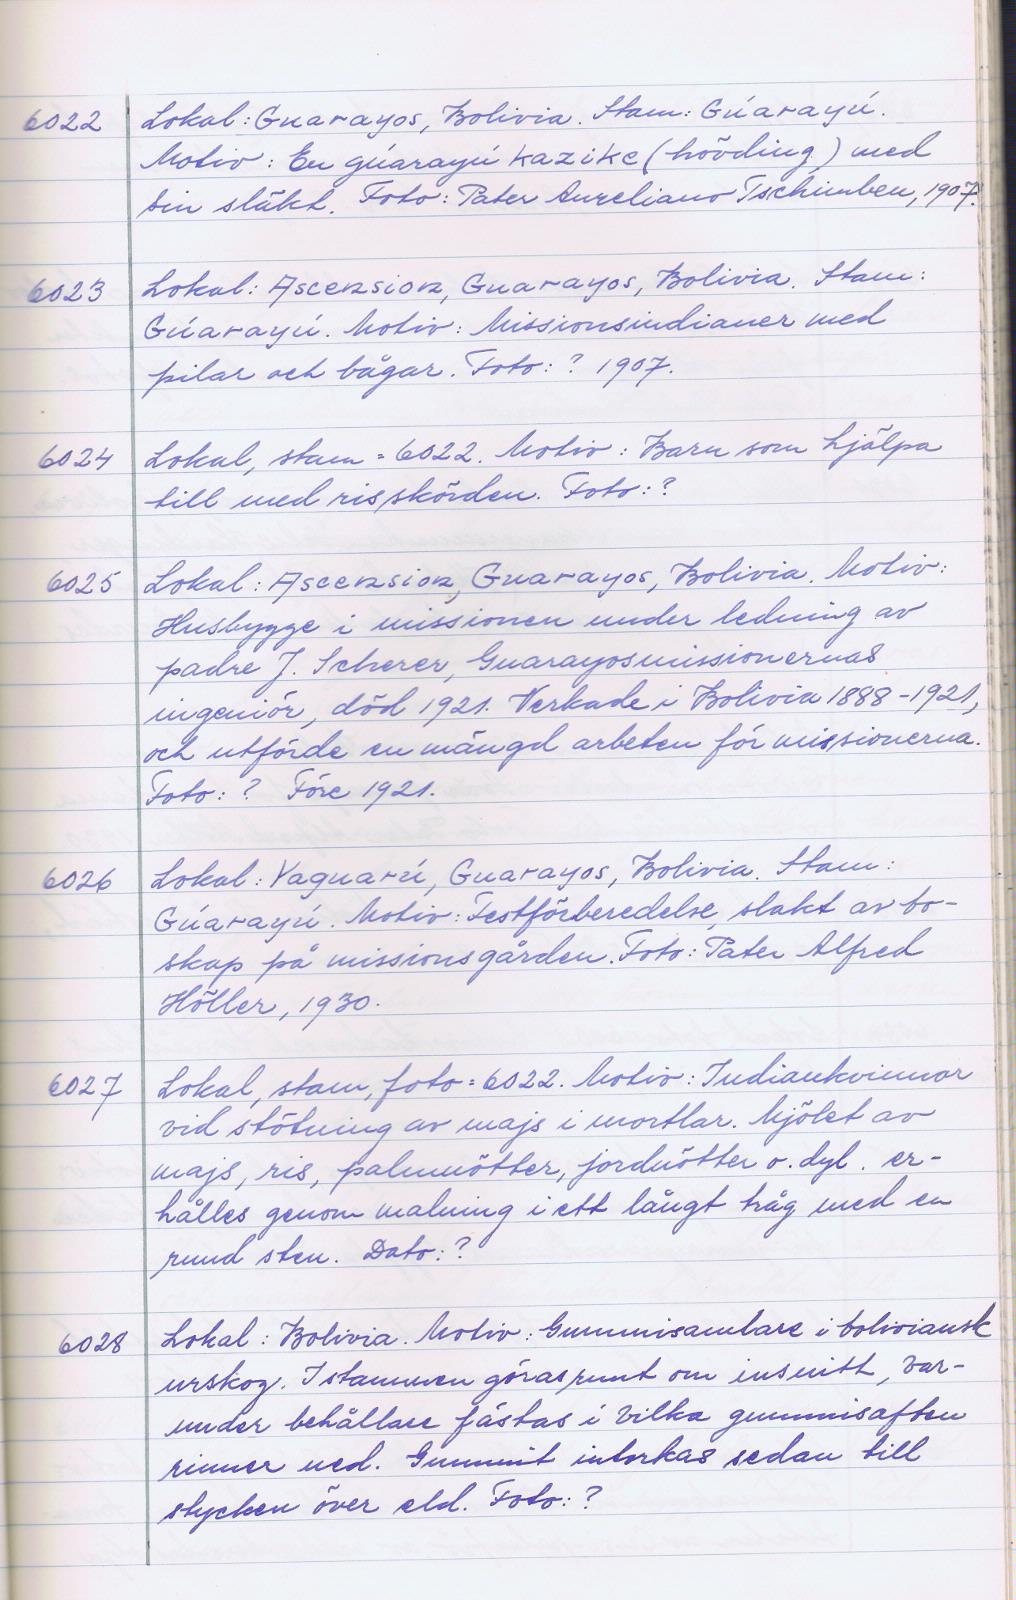 6022 Lokal: Guarayos, Bolivia. Stam: Gúarayú.
Motiv: En gúarayú kazike (hövding) med
sin släkt. Foto: Pater Aureliano Tschimben, 1907.
6023 Lokal: Ascension, Guarayos, Bolivia. Stam:
Gúarayú. Motiv: Missionsindianer med
pilar och bågar. Foto: ? 1907.
6024 Lokal, stam = 6022. Motiv: Barn som hjälpa
till med risskörden. Foto: ?
6025 Lokal: Ascension, Guarayos, Bolivia. Motiv:
Husbygge i missionen under ledning av
padre J. Scherer, Guarayosmissionernas
ingeniör, död 1921. Verkade i Bolivia 1888-1921,
och utförde en mängd arbeten för missionerna.
Foto: ? Före 1921.
6026 Lokal: Yaguarú, Guarayos, Bolivia. Stam:
Gúarayú. Motiv: Festförberedelse, slakt av bo-
skap på missionsgården. Foto: Pater Alfred
Höller, 1930.
6027 Lokal, stam, foto = 6022. Motiv: Indiankvinnor
vid stötning av majs i mortlar. Mjölet av
majs, ris, palmnötter, jordnötter o. dyl. er-
hålles genom malning i ett långt tråg med en
rund sten. Dato: ?
6028 Lokal: Bolivia. Motiv: Gummisamlare i boliviansk
urskog. I stammen göras runt om insnitt, var-
under behållare fästas i vilka gummisaften
rinner ned. Gummit intorkas sedan till
stycken över eld. Foto: ?